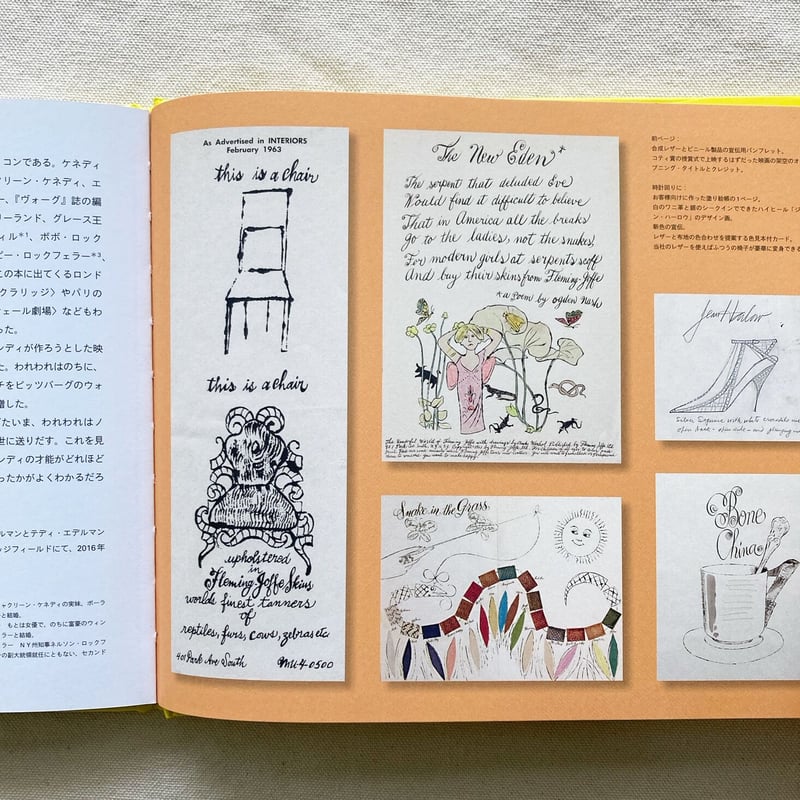 コンである。ケネディ
クリーン・ケネディ、エ
ー、『ヴォーグ』誌の編
リーランド、グレース王
ィル*¹、ボボ・ロック
ビー・ロックフェラー*³、
この本に出てくるロンド
クラリッジ〉やパリの
ェール劇場〉などもわ
った。
ンディが作ろうとした映
た。われわれはのちに、
チをピッツバーグのウォ
贈した。
たいま、われわれはノ
世に送りだす。これを見
ンディの才能がどれほど
ったかがよくわかるだろ
ルマンとテディ・エデルマン
ッジフィールドにて、2016年
ャクリーン・ケネディの実妹、ポーラ
と結婚。
もとは女優で、のちに富豪のウィン
ラーと結婚。
ラー NY州知事ネルソン・ロックフ
の副大統領就任にともない、セカンド
As Advertised in INTERIORS
February 1963
this is a chair
this is a chair
upholstered
in
Fleming-Joffe Skins
worlds finest tanners
of
reptiles, furs, cows, zebras etc
401 Park Ave South MU 4-0500
The New Eden*
The serpent that deluded Eve
Would find it difficult to believe
That in America all the breaks
Go to the ladies, not the snakes!
For modern girls at serpents scoff
And buy their skins from Fleming-Joffe
*a Poem by ogden Nash
Snake in the Grass
前ページ：
合成レザーとビニール製品の宣伝用パンフレット。
コティ賞の授賞式で上映するはずだった映画の架空のオ
プニング・タイトルとクレジット。
時計回りに：
お客様向けに作った塗り絵帳の1ページ。
白のワニ革と銀のシークインでできたハイヒール「ジ
ン・ハーロウ」のデザイン画。
新色の宣伝。
レザーと布地の色合わせを提案する色見本付カード。
当社のレザーを使えばふつうの椅子が豪華に変身できる
Jean Harlow
Silver Sequins with white crocodile
open back - open side - and plunging
Bone
China